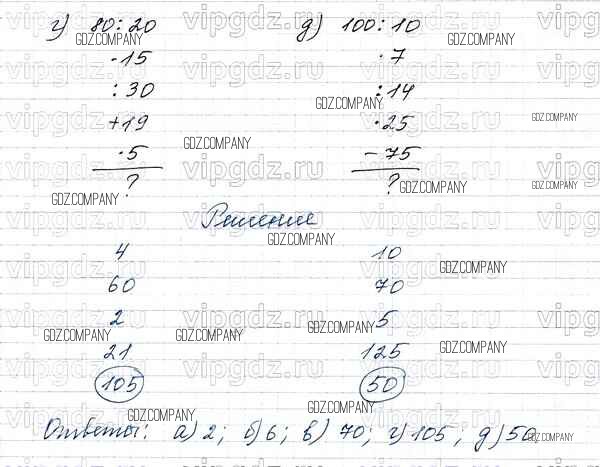 г) 80:20 д) 100:10
·15 ·7
:30 :14
+19 ·25
·5 -75
? ?
Решение
4 10
60 70
2 5
21 125
105 50
Ответы: а) 2; б) 6; в) 70; г) 105; д) 50.
vipgdz.ru
GDZ.COMPANY